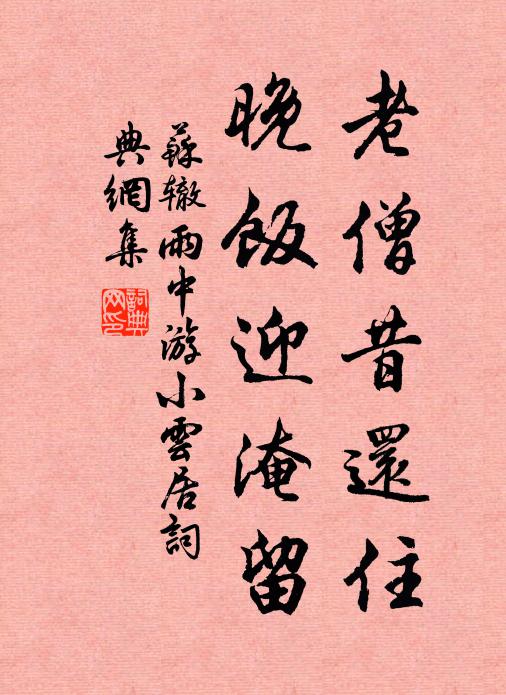 老僧昔還住
晚飯迎淹留
蘇辙雨中游小雲居詞
典網集
詞典
网印